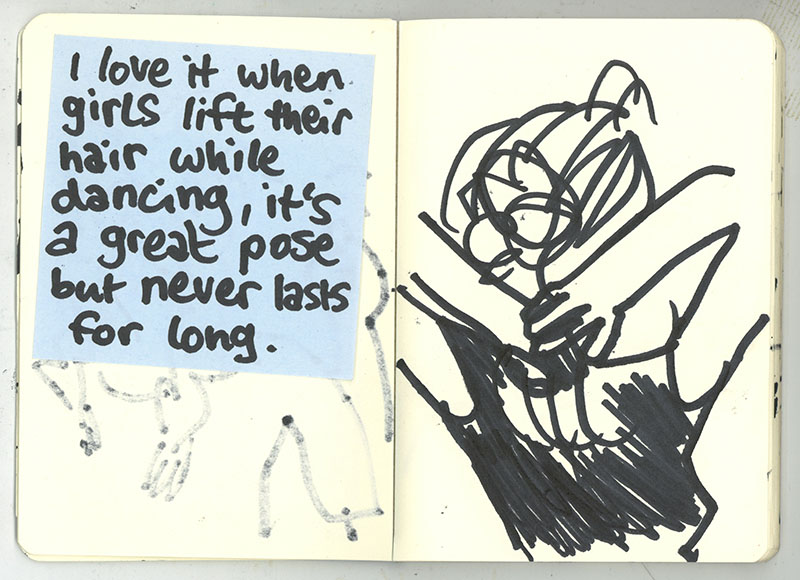 I love it when
girls lift their
hair while
dancing, it's
a great pose
but never lasts
for long.